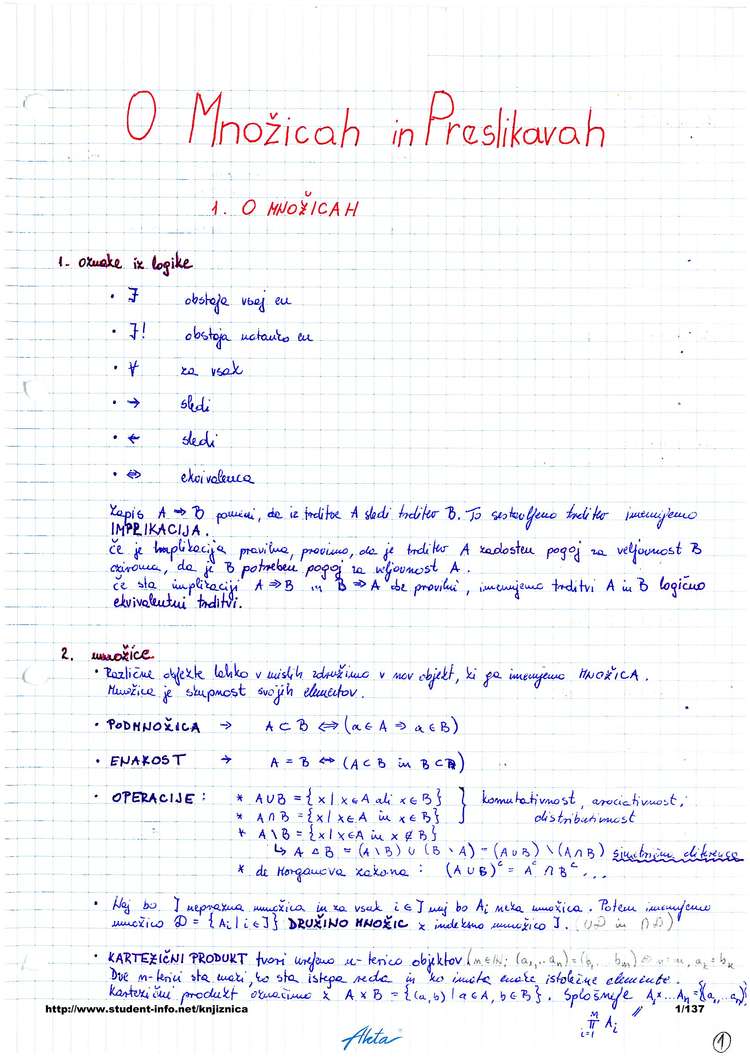 O Množicah in Preslikavah
1. O MNOŽICAH
1. oznake iz logike
• ∃ obstaja vsaj en
• ∃! obstaja natanko en
• ∀ za vsak
• → sledi
• ← sledi
• ⇔ ekvivalenca
Zapis A ⇒ B pomeni, da iz trditve A sledi trditev B. To sestavljeno trditev imenujemo
IMPLIKACIJA.
če je implikacija pravilna, pravimo, da je trditev A zadosten pogoj za veljavnost B
oziroma, da je B potreben pogoj za veljavnost A.
če sta implikaciji A ⇒ B in B ⇒ A obe pravilni, imenujemo trditvi A in B logično
ekvivalentni trditvi.
2. množice
• Različne objekte lahko v mislih združimo v nov objekt, ki ga imenujemo MNOŽICA.
Množica je skupnost svojih elementov.
• PODMNOŽICA → A ⊂ B ⇔ (a ∈ A ⇒ a ∈ B)
• ENAKOST → A = B ⇔ (A ⊂ B in B ⊂ A)
• OPERACIJE: * A ∪ B = {x | x ∈ A ali x ∈ B} } komutativnost, asociativnost,
* A ∩ B = {x | x ∈ A in x ∈ B} distributivnost
* A \ B = {x | x ∈ A in x ∉ B}
↳ A △ B = (A \ B) ∪ (B \ A) = (A ∪ B) \ (A ∩ B) simetrična diferenca
* de Morganova zakona: (A ∪ B)ᶜ = Aᶜ ∩ Bᶜ, ...
• Naj bo J neprazna množica in za vsak i ∈ J naj bo Aᵢ neka množica. Potem imenujemo
množico 𝒟 = {Aᵢ | i ∈ J} DRUŽINO MNOŽIC z indeksno množico J. (∪𝒟 in ∩𝒟)
• KARTEZIČNI PRODUKT tvori urejeno n-terico objektov (n ∈ ℕ; (a₁,...aₙ) = (b₁...bₘ) ⇔ n = m, aₖ = bₖ
Dve n-terici sta enaki, ko sta istega reda in ko imata enake istoležne elemente.
Kartezični produkt označimo z A × B = {(a,b) | a ∈ A, b ∈ B}. Splošneje A₁×...Aₙ = {(a₁,...aₙ)}
http://www.student-info.net/knjiznica 1/137
∏ Aᵢ
i=1
Akta
1